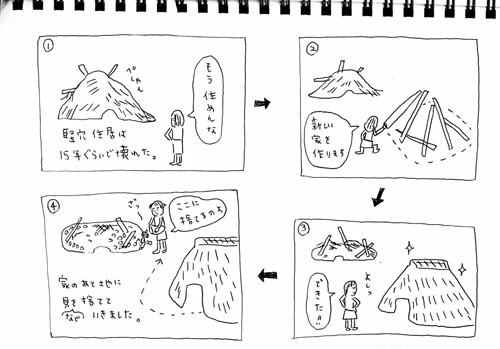 ①
ぺしゃん
もう住めんな
竪穴住居は
15年ぐらいで壊れた。
②
新しい
家を
作ります
③
よしっ
できた!!
④
ざっ
ここに
捨てるのよ
家のあとさに
貝を捨てて
など いきました。